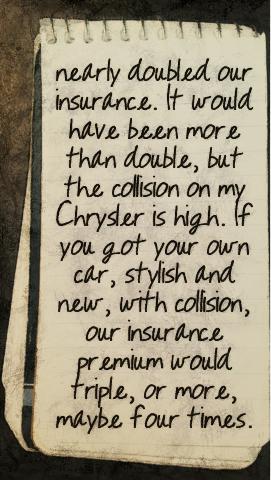 nearly doubled our
insurance. It would
have been more
than double, but
the collision on my
Chrysler is high. If
you got your own
car, stylish and
new, with collision,
our insurance
premium would
triple, or more,
maybe four times.